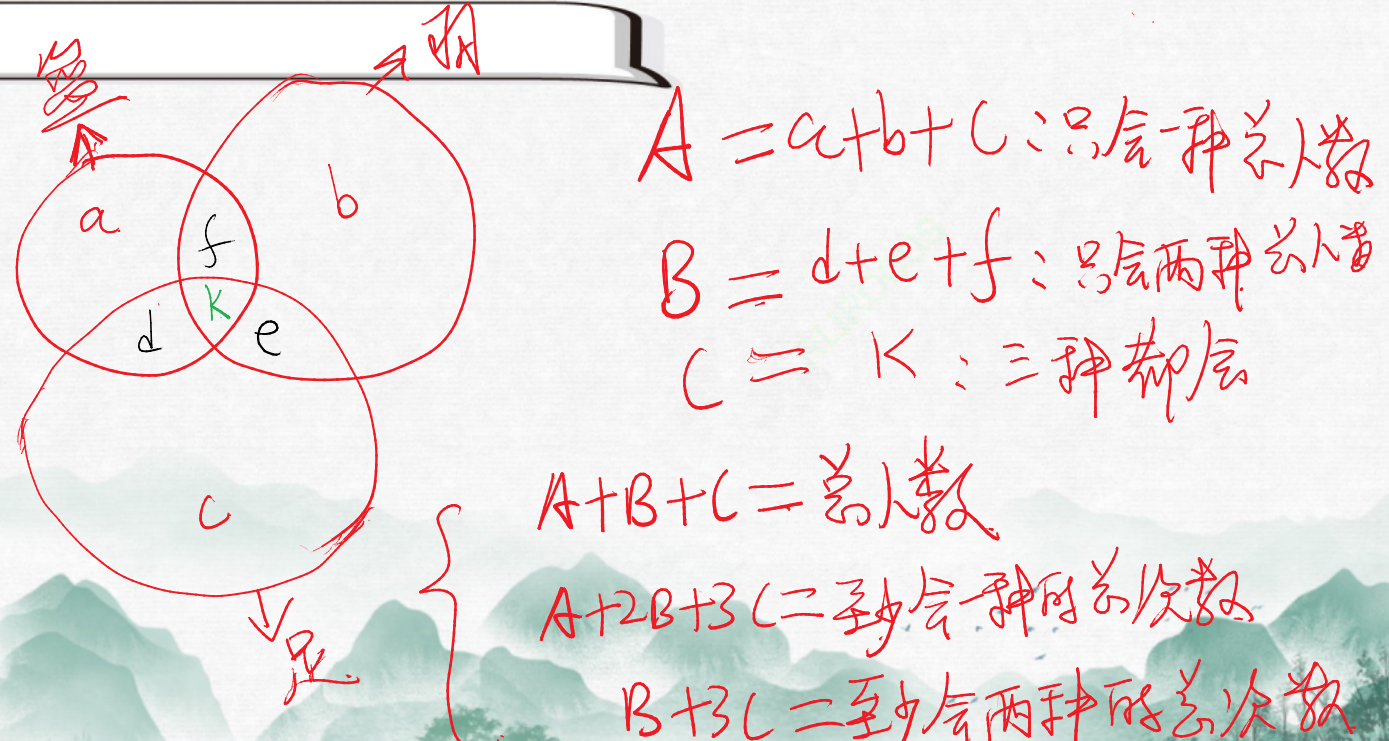 篮
羽
a
f
b
k
d
e
c
足
A=a+b+c:只会一种总人数
B=d+e+f:只会两种总人数
C=K:三种都会
A+B+C=总人数
A+2B+3C=至少会一种的总次数
B+3C=至少会两种的总次数